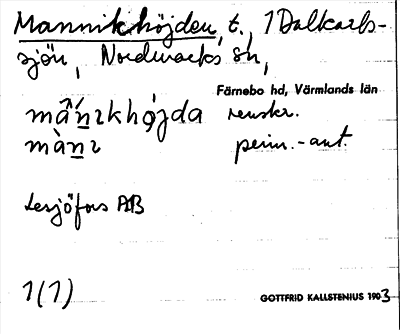 Mannikhöjden, t., 1 Dalkarls-
sjön, Nordmarks sn,
Färnebo hd, Värmlands län
renskr.
perm.-ant.
Lesjöfors AB
1(1)
GOTTFRID KALLSTENIUS 1903